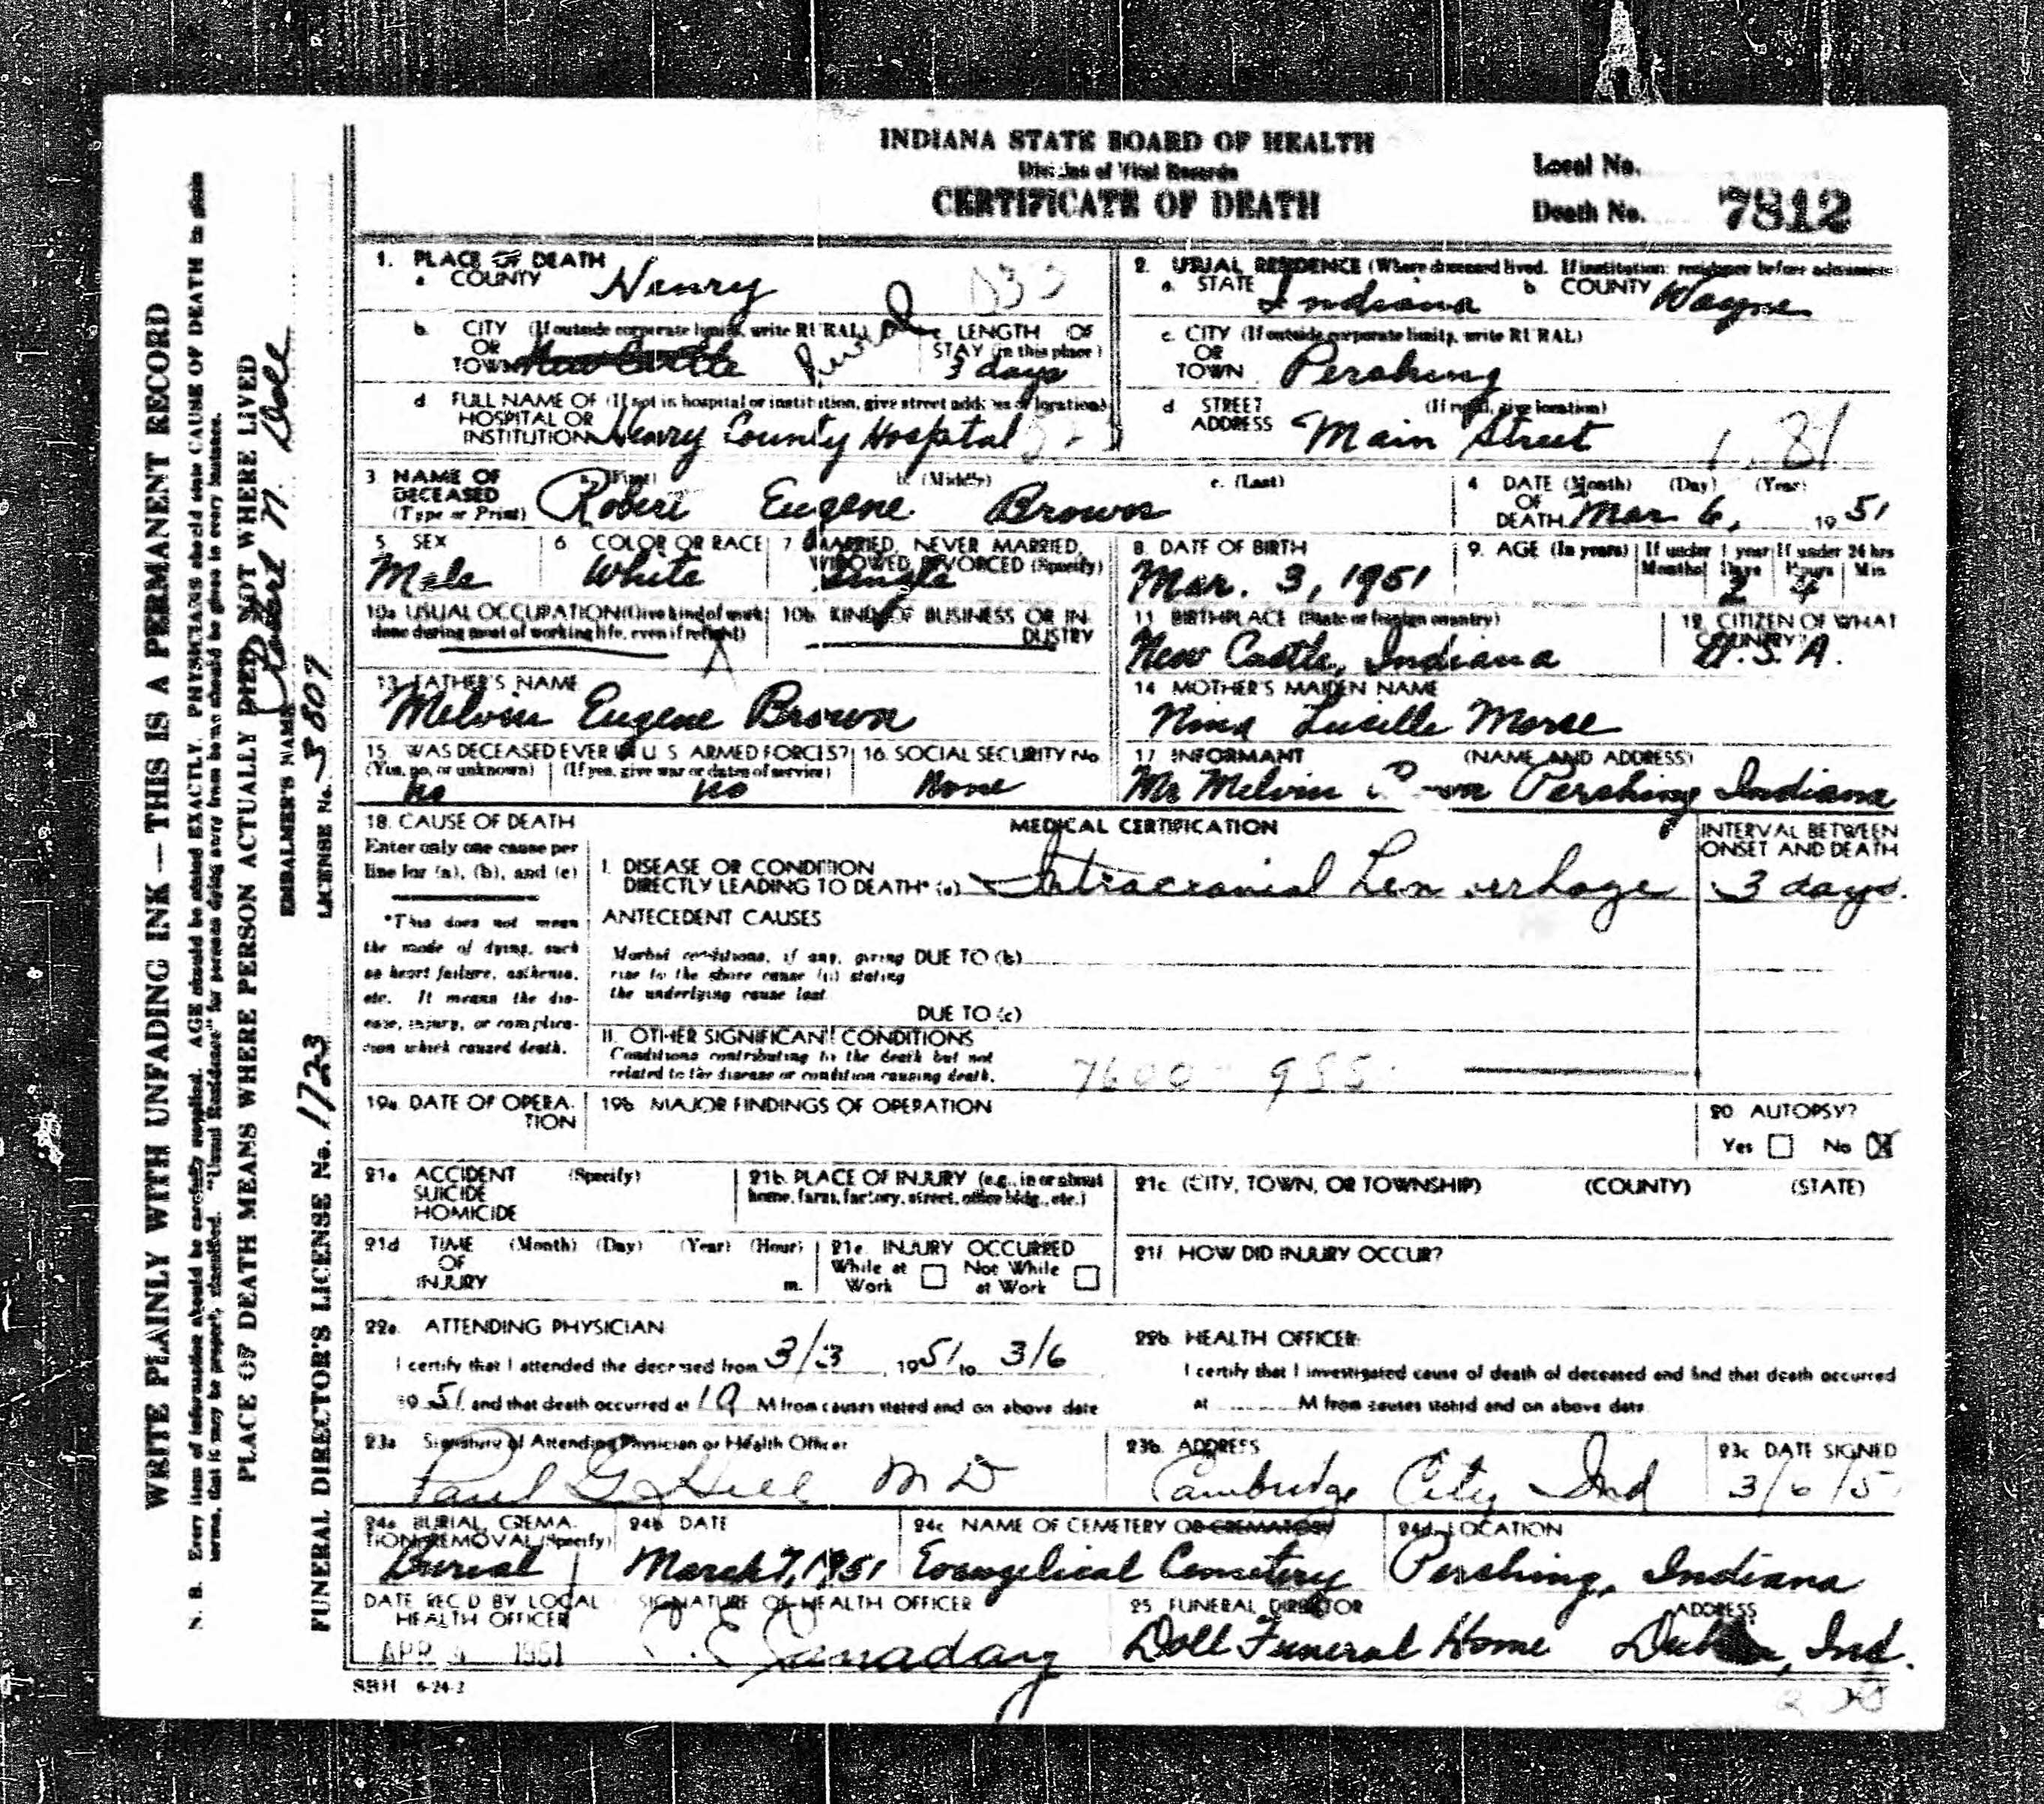 INDIANA STATE BOARD OF HEALTH
Division of Vital Records
CERTIFICATE OF DEATH
Local No.
Death No. 7812
1. PLACE OF DEATH
a COUNTY Henry
b. CITY (If outside corporate limits, write RURAL) Rural
OR
TOWN New Castle
c LENGTH OF
STAY (in this place)
3 days
d FULL NAME OF (If not in hospital or institution, give street address or location)
HOSPITAL OR
INSTITUTION Henry County Hospital
2. USUAL RESIDENCE (Where deceased lived. If institution: residence before admission)
a. STATE Indiana b COUNTY Wayne
c. CITY (If outside corporate limits, write RURAL)
OR
TOWN Pershing
d STREET (If rural, give location)
ADDRESS Main Street
1.81
3 NAME OF DECEASED (Type or Print)
a. (First) b. (Middle) c. (Last)
Robert Eugene Brown
4 DATE (Month) (Day) (Year)
OF
DEATH Mar 6, 1951
5. SEX
Male
6. COLOR OR RACE
White
7. MARRIED, NEVER MARRIED,
WIDOWED, DIVORCED (Specify)
Single
8. DATE OF BIRTH
Mar. 3, 1951
9. AGE (In years) If under 1 year If under 24 hrs
Months Days Hours Min
2 4
10a USUAL OCCUPATION (Give kind of work
done during most of working life, even if retired)
10b. KIND OF BUSINESS OR IN-
DUSTRY
11 BIRTHPLACE (State or foreign country)
New Castle, Indiana
12. CITIZEN OF WHAT
COUNTRY?
U.S.A.
13 FATHER'S NAME
Melvin Eugene Brown
14 MOTHER'S MAIDEN NAME
Nina Lucille Morse
15. WAS DECEASED EVER IN U. S. ARMED FORCES?
(Yes, no, or unknown) (If yes, give war or dates of service)
no no
16. SOCIAL SECURITY No.
None
17 INFORMANT (NAME AND ADDRESS)
Mr Melvin Brown Pershing Indiana
18. CAUSE OF DEATH
Enter only one cause per
line for (a), (b), and (c)
*This does not mean
the mode of dying, such
as heart failure, asthenia,
etc. It means the dis-
ease, injury, or complica-
tion which caused death.
MEDICAL CERTIFICATION
INTERVAL BETWEEN
ONSET AND DEATH
I. DISEASE OR CONDITION
DIRECTLY LEADING TO DEATH* (a) Intracranial Hemorrhage 3 days.
ANTECEDENT CAUSES
Morbid conditions, if any, giving DUE TO (b)
rise to the above cause (a) stating
the underlying cause last.
DUE TO (c)
II. OTHER SIGNIFICANT CONDITIONS
Conditions contributing to the death but not
related to the disease or condition causing death.
7600 955
19a. DATE OF OPERA-
TION
19b. MAJOR FINDINGS OF OPERATION
20. AUTOPSY?
Yes No X
21a ACCIDENT (Specify)
SUICIDE
HOMICIDE
21b. PLACE OF INJURY (e.g., in or about
home, farm, factory, street, office bldg., etc.)
21c. (CITY, TOWN, OR TOWNSHIP) (COUNTY) (STATE)
21d TIME (Month) (Day) (Year) (Hour)
OF
INJURY m.
21e. INJURY OCCURRED
While at Not While
Work at Work
21f. HOW DID INJURY OCCUR?
22a. ATTENDING PHYSICIAN
I certify that I attended the deceased from 3/3, 1951 to 3/6
1951 and that death occurred at M from causes stated and on above date
22b. HEALTH OFFICER:
I certify that I investigated cause of death of deceased and find that death occurred
at M from causes stated and on above date.
23a Signature of Attending Physician or Health Officer
Paul G. Hill M D
23b. ADDRESS
Cambridge City Ind
23c DATE SIGNED
3/6/5
24a BURIAL, CREMA-
TION REMOVAL (Specify)
Burial
24b DATE
March 7, 1951
24c NAME OF CEMETERY OR CREMATORY
Evangelical Cemetery
24d. LOCATION
Pershing, Indiana
DATE REC'D BY LOCAL
HEALTH OFFICER
APR 1951
SIGNATURE OF HEALTH OFFICER
C. E. Canaday
25 FUNERAL DIRECTOR ADDRESS
Doll Funeral Home Dublin, Ind.
SBH 6-24-2
WRITE PLAINLY WITH UNFADING INK — THIS IS A PERMANENT RECORD
N. B. Every item of information should be carefully supplied. AGE should be stated EXACTLY. PHYSICIANS should state CAUSE OF DEATH in plain
terms, that it may be properly classified. "Usual Residence" for persons dying away from home should be given in every instance.
PLACE OF DEATH MEANS WHERE PERSON ACTUALLY DIED NOT WHERE LIVED
EMBALMER'S NAME Robert N. Doll
FUNERAL DIRECTOR'S LICENSE No. 1723 LICENSE No. 5807